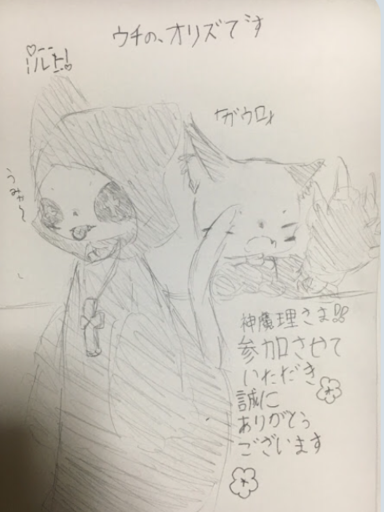 ウチの、オリズです
ルト!
「ガウロ」
うみゃ〜
神魔理さま!!
参加させて
いただき
誠に
ありがとう
ございます